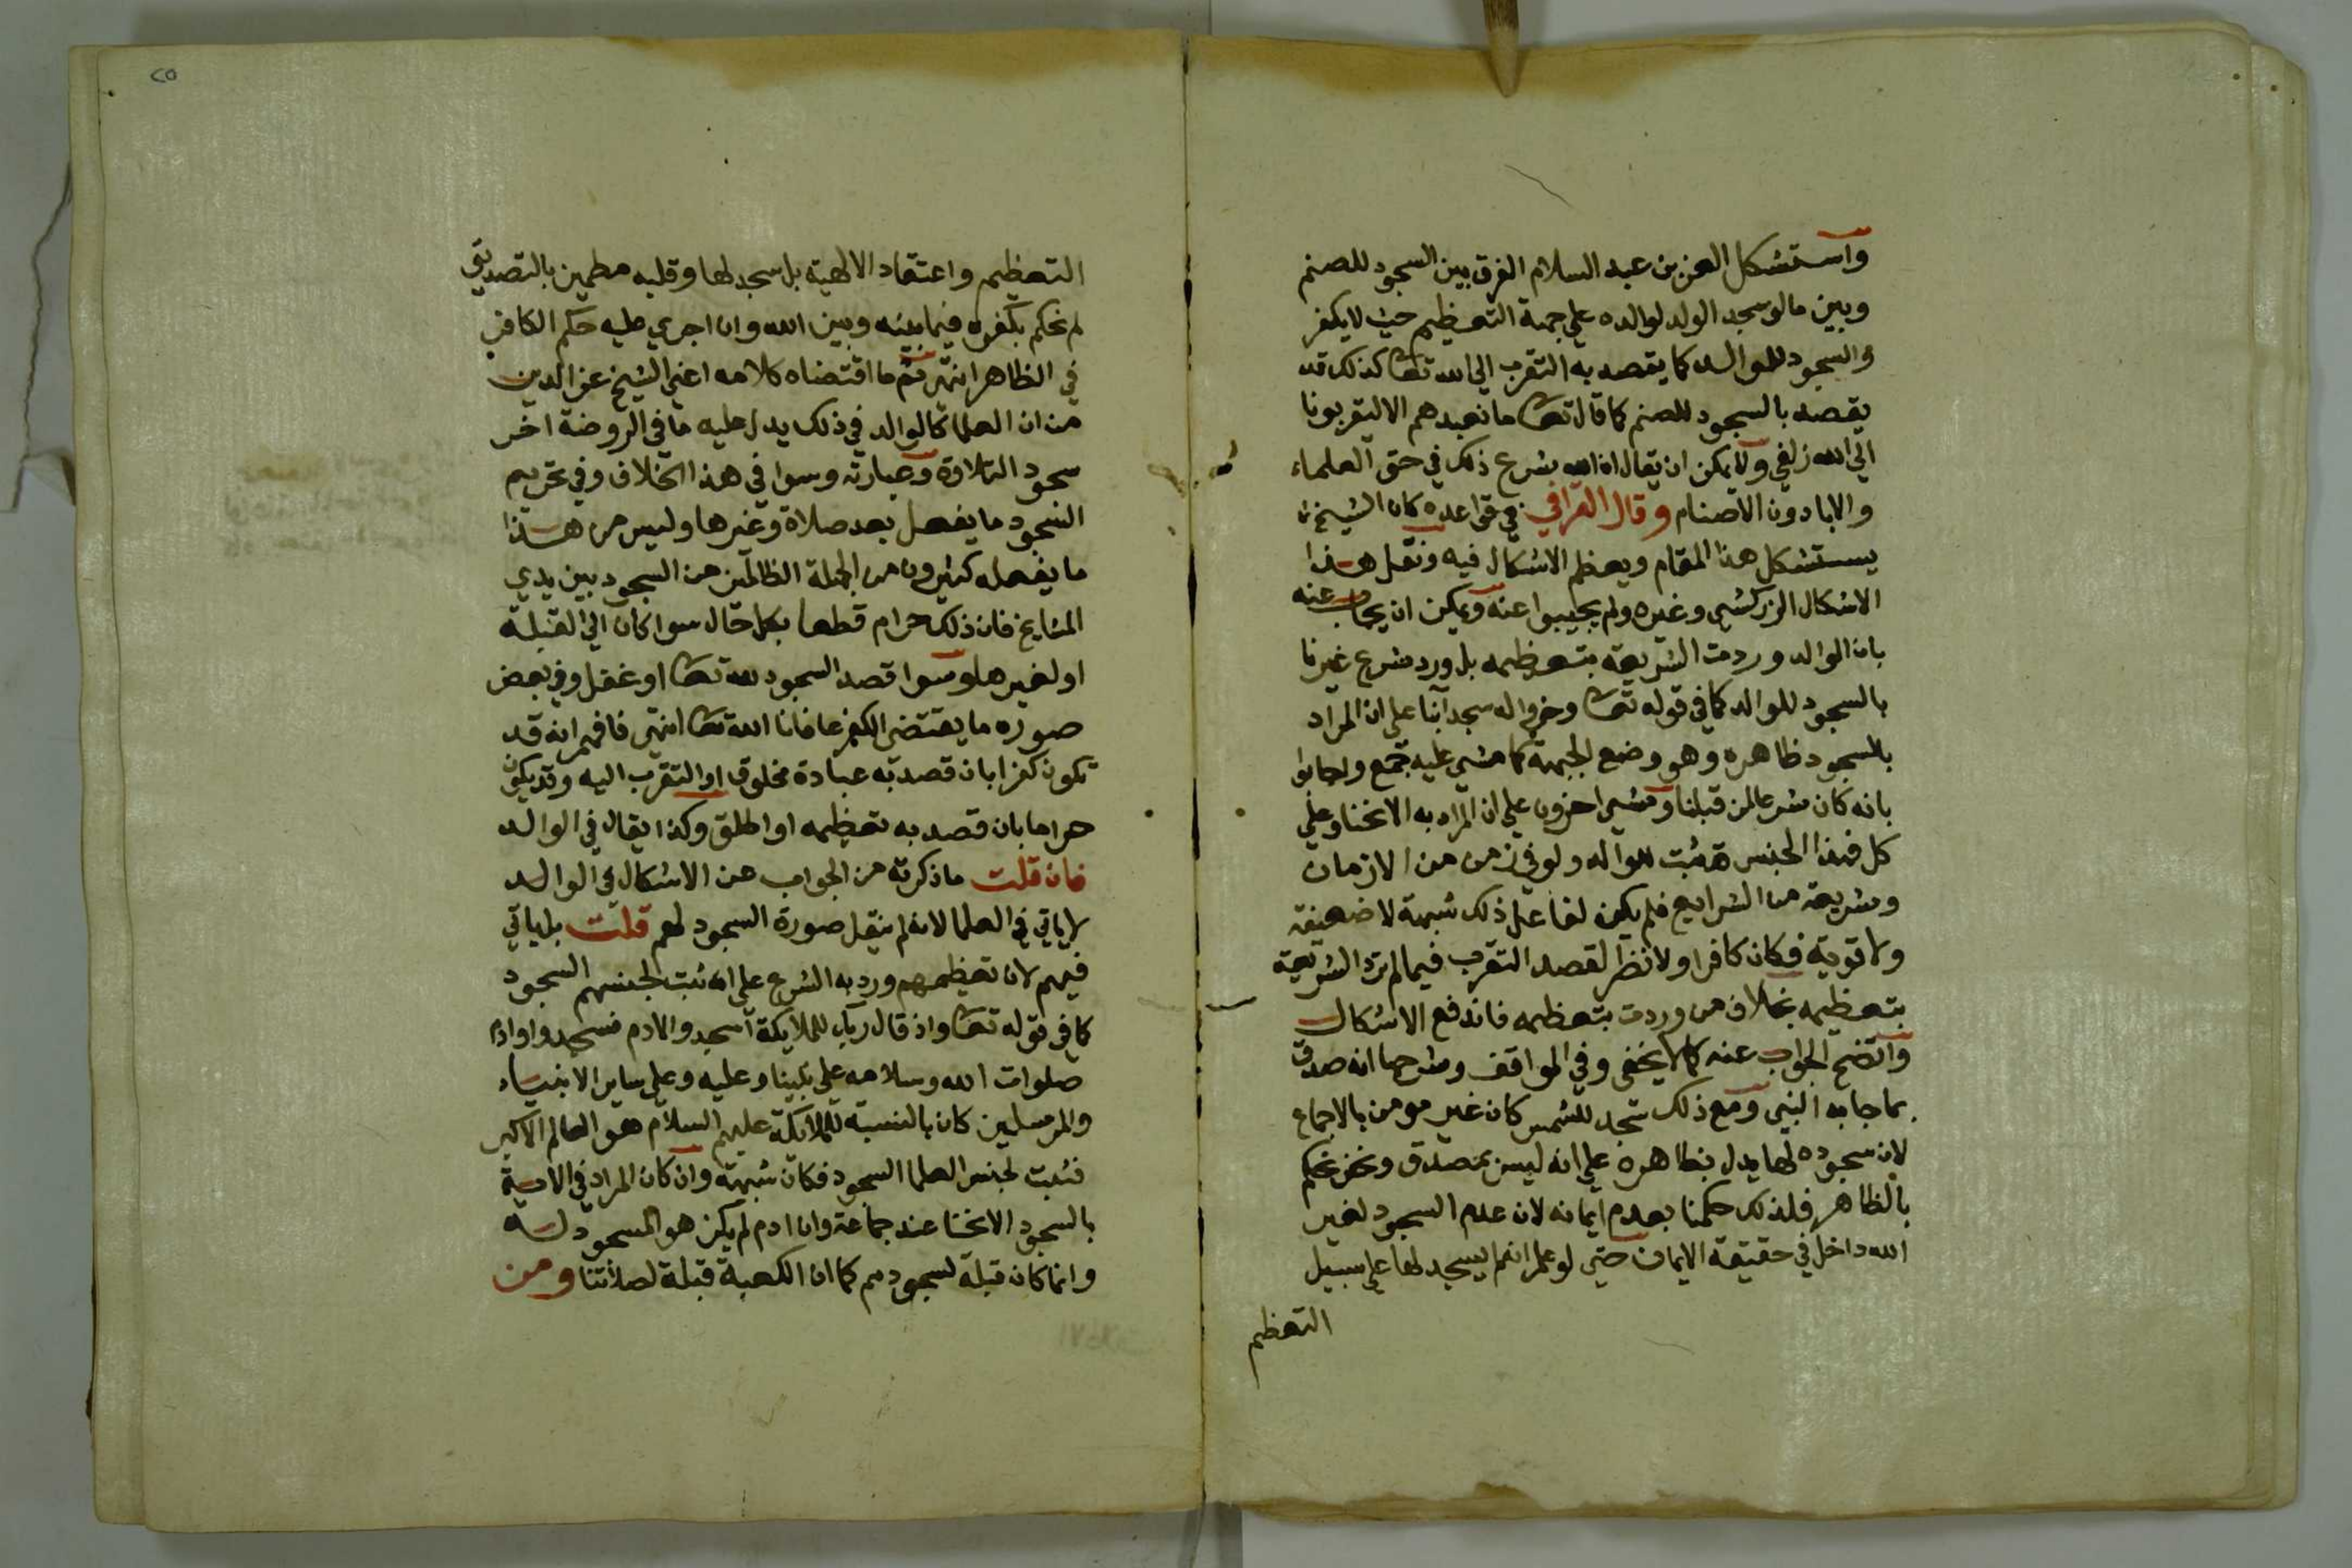 واستشكل العز بن عبد السلام الفرق بين السجود للصنم
وبين ما لو سجد الولد لوالده على جهة التعظيم حيث لا يكفر
والسجود للوالد كما يقصد به التقرب الى الله تعا كذلك قد
يقصد بالسجود للصنم كما قال تعا ما نعبدهم الا ليقربونا
الي الله زلفي ولا يمكن ان يقال ان الله شرع ذلك في حق العلماء
والابا دون الاصنام وقال القرافي في قواعده كان الشيخ
يستشكل هذا المقام ويعظم الاشكال فيه ونقل هذا
الاشكال الزركشي وغيره ولم يجيبوا عنه ويمكن ان يجاب عنه
بان الوالد وردت الشريعة بتعظيمه بل ورد شرع غيرنا
بالسجود للوالد كما في قوله تعا وخروا له سجدا بنا على ان المراد
بالسجود ظاهره وهو وضع الجبهة كما مشي عليه جمع واجابوا
بانه كان شرعا لمن قبلنا ومشي اخرون علي ان المراد به الانحنا وعلي
كل فهذا الجنس قد ثبت للوالد ولو في زمن من الازمان
وشريعة من الشرايع فلم يكن لفاعل ذلك شبهة لا ضعيفة
ولا قوية فكان كافرا ولا نظر لقصد التقرب فيما لم ترد الشريعة
بتعظيمه بخلاف من وردت بتعظيمه فاندفع الاشكال
واتضح الجواب عنه كما لا يخفى وفي المواقف وشرحها انه صدق
بما جا به النبي ومع ذلك سجد للشمس كان غير مومن بالاجماع
لان سجوده لها يدل بظاهره علي انه ليس بمصدق ونحن نحكم
بالظاهر فلذلك حكمنا بعدم ايمانه لان عدم السجود لغير
الله داخل في حقيقة الايمان حتي لو علم انه لم يسجد لها علي سبيل
التعظيم
٢٥
التعظيم واعتقاد الالهية بل سجد لها وقلبه مطمين بالتصديق
لم نحكم بكفره فيما بينه وبين الله وان اجري عليه حكم الكافر
في الظاهر انتهى ثم ما اقتضاه كلامه اعني الشيخ عز الدين
من ان العلما كالوالد في ذلك يدل عليه ما في الروضة اخر
سجود التلاوة وعبارته وسوا في هذا الخلاف وفي تحريم
السجود ما يفعل بعد صلاة وغيرها وليس من هذا
ما يفعله كثيرون من الجهلة الظالمين من السجود بين يدي
المشايخ فان ذلك حرام قطعا بكل حال سوا كان الي القبلة
او لغيرها وسوا قصد السجود لله تعا او غفل وفي بعض
صوره ما يقتضى الكفر عافانا الله تعا انتهى فافهم انه قد
يكون كفرا بان قصد به عبادة مخلوق او التقرب اليه وقد يكون
حراما بان قصد به تعظيمه او اطلق وكذا يقال في الوالد
فان قلت ما ذكرته من الجواب عن الاشكال في الوالد
لا ياتي في العلما لانه لم ينقل صورة السجود لهم قلت بل ياتي
فيهم لان تعظيمهم ورد به الشرع على انه ثبت لجنسهم السجود
كما في قوله تعا واذ قال ربك للملايكة اسجدوا لادم فسجدوا وادم
صلوات الله وسلامه علي نبينا وعليه وعلي ساير الانبياء
والمرسلين كان بالنسبة للملائكة عليهم السلام هو العالم الاكبر
فثبت لجنس العلما السجود فكان شبهة وان كان المراد في الاية
بالسجود الانحنا عند جماعة وان ادم لم يكن هو المسجود له
وانما كان قبلة لسجودهم كما ان الكعبة قبلة لصلاتنا ومن